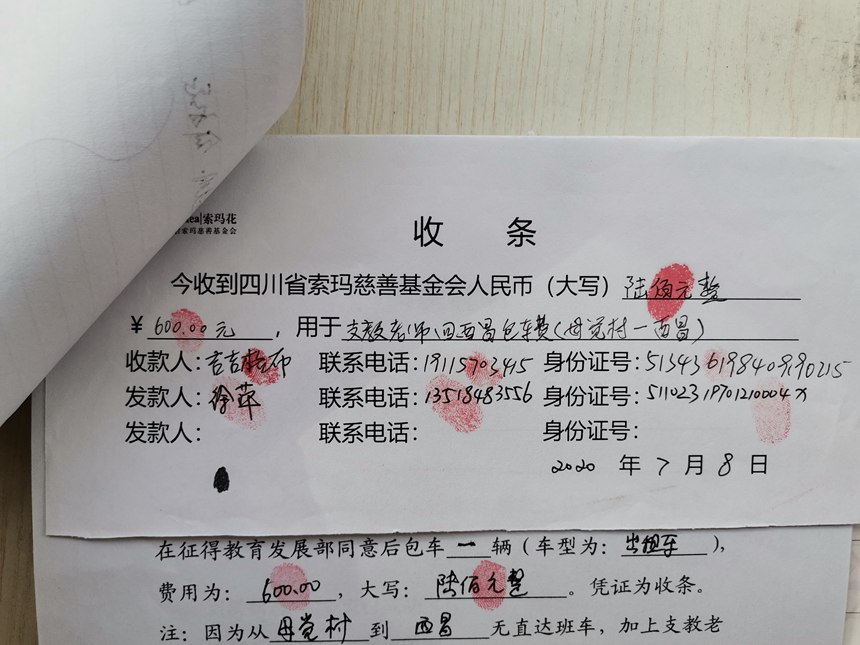 索玛花
索玛慈善基金会
收 条
今收到四川省索玛慈善基金会人民币（大写）陆佰元整
¥ 600.00元 ，用于支教老师回西昌包车费（母觉村一西昌）
收款人：吉吉拉布 联系电话：19115703415 身份证号：513436198409190215
发款人：徐萍 联系电话：13518483556 身份证号：51102319701210004X
发款人： 联系电话： 身份证号：
2020 年 7 月 8 日
在征得教育发展部同意后包车 一 辆（车型为：出租车），
费用为：600.00 ，大写：陆佰元整 。凭证为收条。
注：因为从 母觉村 到 西昌 无直达班车，加上支教老